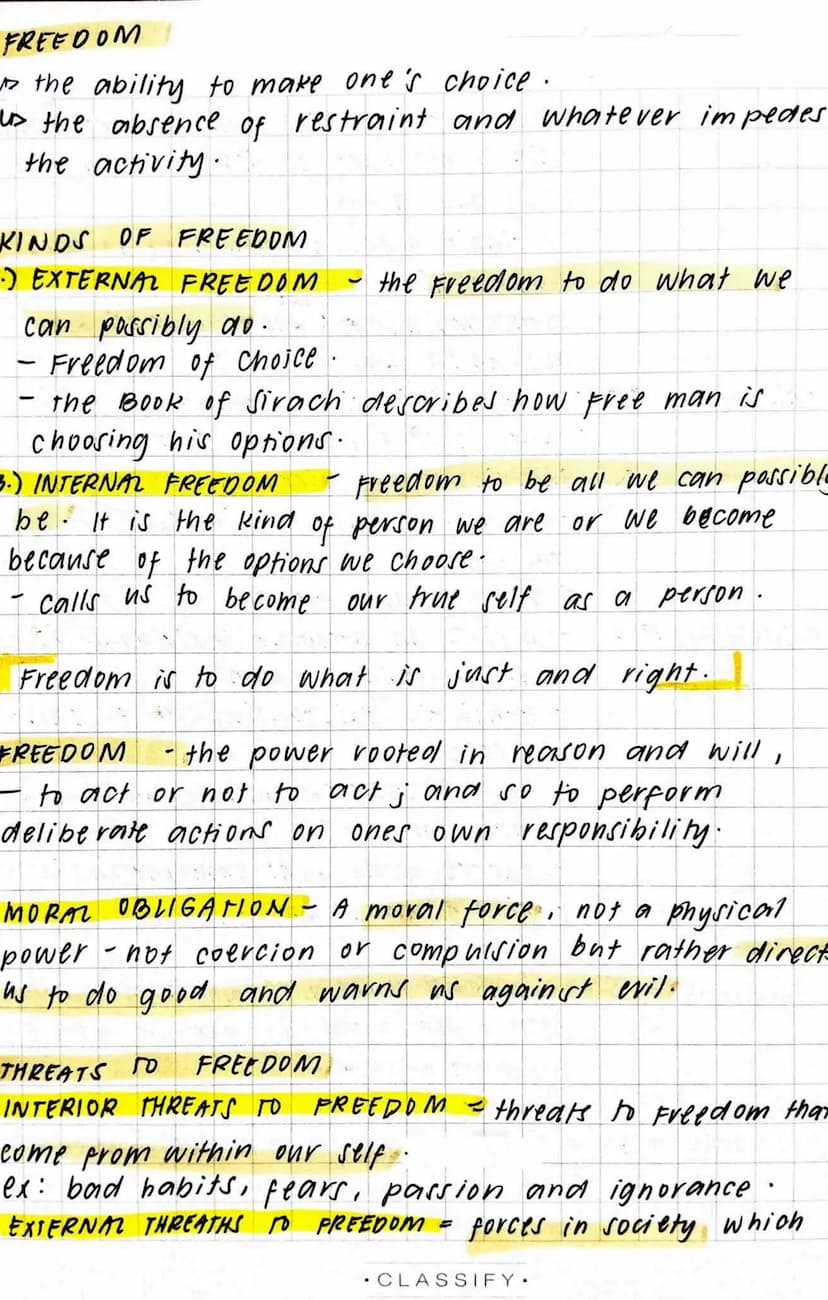 FREEDOM
↳ the ability to make one's choice.
↳ the absence of restraint and whatever impedes
the activity.
KINDS OF FREEDOM
.) EXTERNAL FREEDOM - the freedom to do what we
can possibly do.
- Freedom of choice.
- The Book of Sirach describes how free man is
choosing his options.
B.) INTERNAL FREEDOM - freedom to be all we can possibly
be. It is the kind of person we are or we become
because of the options we choose.
- calls us to become our true self as a person.
Freedom is to do what is just and right.
FREEDOM - the power rooted in reason and will,
- to act or not to act; and so to perform
deliberate actions on ones own responsibility.
MORAL OBLIGATION - A moral force, not a physical
power - not coercion or compulsion but rather direct
us to do good and warns us against evil.
THREATS TO FREEDOM
INTERIOR THREATS TO FREEDOM = threats to freedom that
come from within our self.
ex: bad habits, fears, passion and ignorance.
EXTERNAL THREATHS TO FREEDOM = forces in society which
• CLASSIFY •